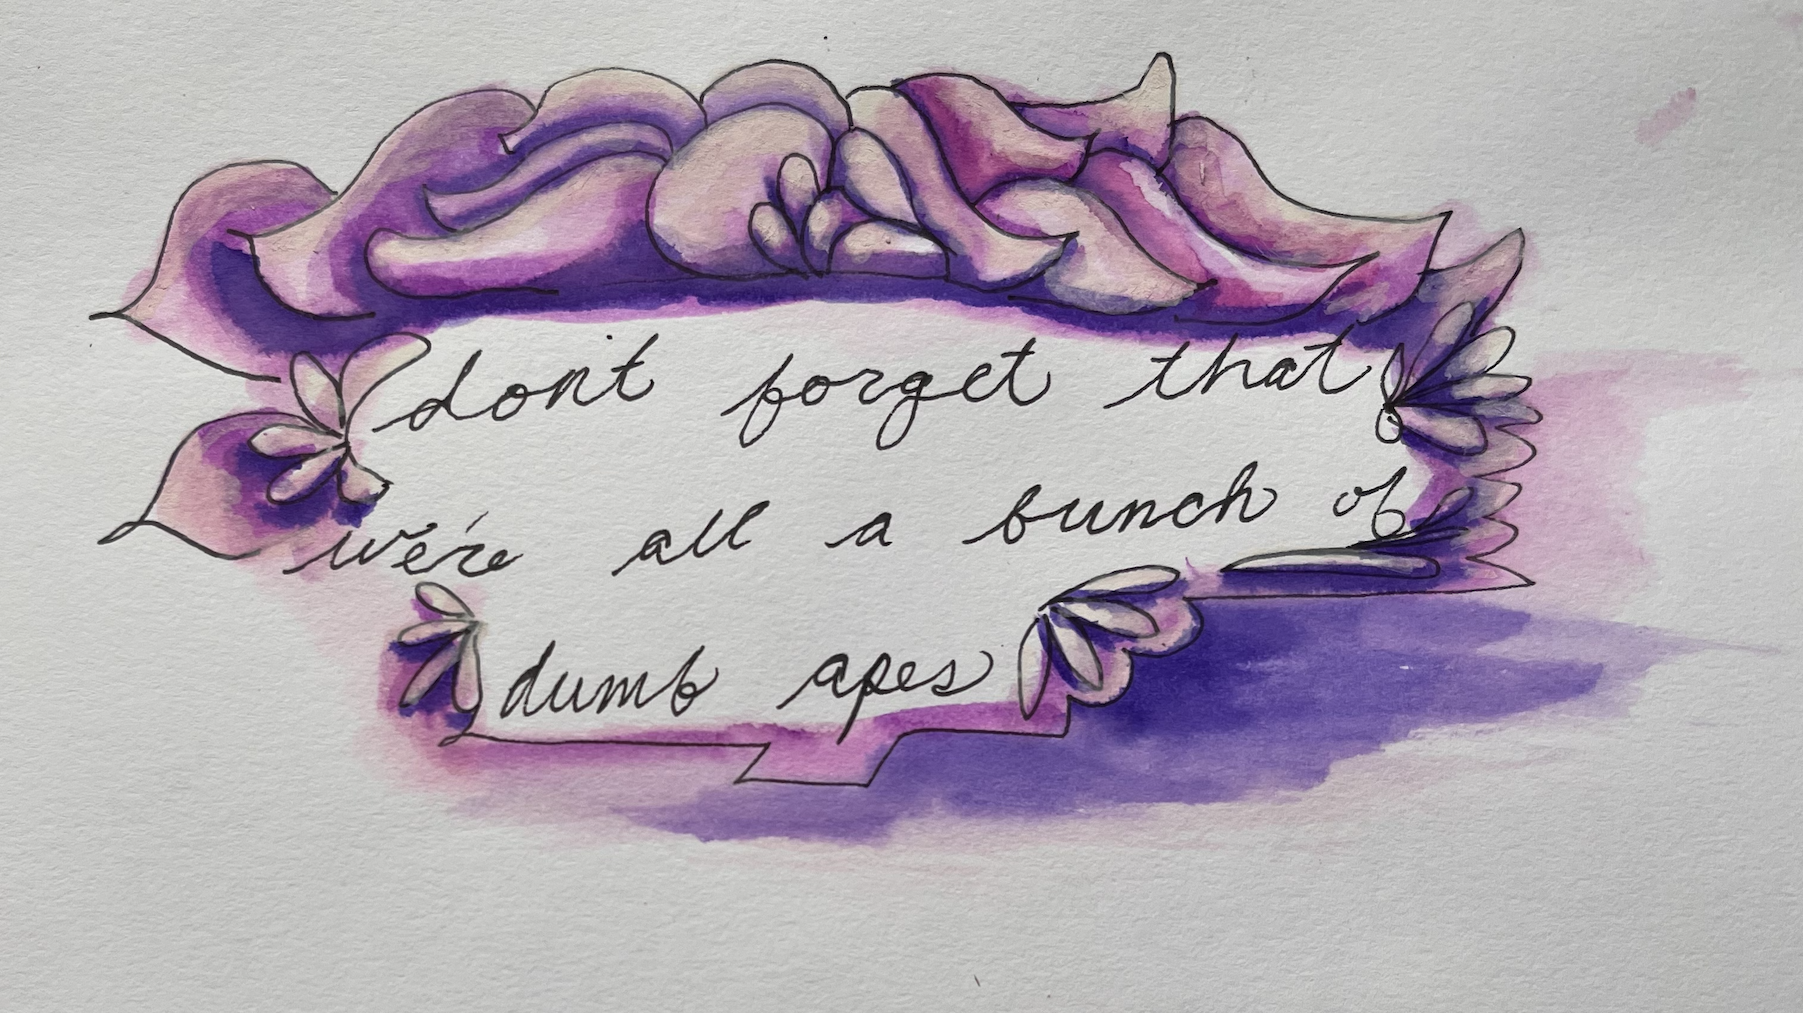 don't forget that
we're all a bunch of
dumb apes